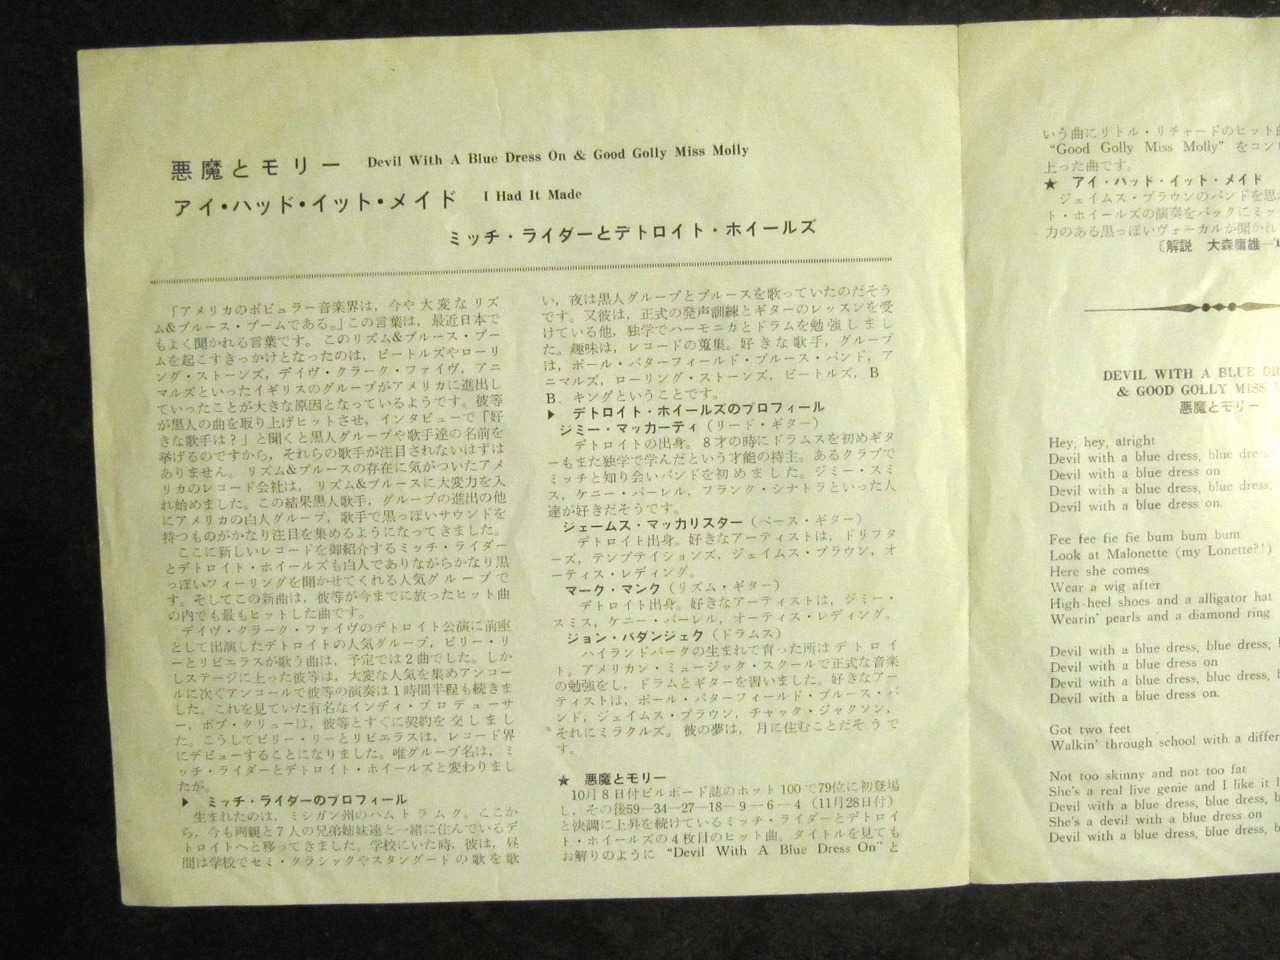 悪魔とモリー Devil With A Blue Dress On & Good Golly Miss Molly
アイ・ハッド・イット・メイド I Had It Made
ミッチ・ライダーとデトロイト・ホイールズ
「アメリカのポピュラー音楽界は，今や大変なリズ
ム&ブルース・ブームである。」この言葉は，最近日本で
もよく聞かれる言葉です。このリズム&ブルース・ブー
ムを起こすきっかけとなったのは，ビートルズやローリ
ング・ストーンズ，デイヴ・クラーク・ファイヴ，アニ
マルズといったイギリスのグループがアメリカに進出し
ていったことが大きな原因となっているようです。彼等
が黒人の曲を取り上げヒットさせ，インタビューで「好
きな歌手は？」と聞くと黒人グループや歌手達の名前を
挙げるのですから，それらの歌手が注目されないはずは
ありません。リズム&ブルースの存在に気がついたアメ
リカのレコード会社は，リズム&ブルースに大変力を入
れ始めました。この結果黒人歌手，グループの進出の他
にアメリカの白人グループ，歌手で黒っぽいサウンドを
持つものがかなり注目を集めるようになってきました。
ここに新しいレコードを御紹介するミッチ・ライダー
とデトロイト・ホイールズも白人でありながらかなり黒
っぽいフィーリングを聞かせてくれる人気グループで
す。そしてこの新曲は，彼等が今までに放ったヒット曲
の内でも最もヒットした曲です。
デイヴ・クラーク・ファイヴのデトロイト公演に前座
として出演したデトロイトの人気グループ，ビリー・リ
ーとリビエラスが歌う曲は，予定では2曲でした。しか
しステージに上った彼等は，大変な人気を集めアンコー
ルに次ぐアンコールで彼等の演奏は1時間半程も続きま
した。これを見ていた有名なインディ・プロデューサ
ー，ボブ・クリューは，彼等とすぐに契約を交しまし
た。こうしてビリー・リーとリビエラスは，レコード界
にデビューすることになりました。唯グループ名は，ミ
ッチ・ライダーとデトロイト・ホイールズと変わりまし
たが。
▶ ミッチ・ライダーのプロフィール
生まれたのは，ミシガン州のハムトラムク。ここか
ら，今も両親と7人の兄弟姉妹達と一緒に住んでいるデ
トロイトへと移ってきました。学校にいた時，彼は，昼
間は学校でセミ・クラシックやスタンダードの歌を歌
い，夜は黒人グループとブルースを歌っていたのだそう
です。又彼は，正式の発声訓練とギターのレッスンを受
けている他，独学でハーモニカとドラムを勉強しまし
た。趣味は，レコードの蒐集。好きな歌手，グループ
は，ポール・バターフィールド・ブルース・バンド，ア
ニマルズ，ローリング・ストーンズ，ビートルズ，B
B．キングということです。
▶ デトロイト・ホイールズのプロフィール
ジミー・マッカーティ（リード・ギター）
デトロイトの出身。8才の時にドラムスを初めギタ
ーもまた独学で学んだという才能の持主。あるクラブで
ミッチと知り会いバンドを初めました。ジミー・スミ
ス，ケニー・バーレル，フランク・シナトラといった人
達が好きだそうです。
ジェームス・マッカリスター（ベース・ギター）
デトロイト出身。好きなアーティストは，ドリフタ
ーズ，テンプテイションズ，ジェイムス・ブラウン，オ
ーティス・レディング。
マーク・マンク（リズム・ギター）
デトロイト出身。好きなアーティストは，ジミー・
スミス，ケニー・バーレル，オーティス・レディング。
ジョン・バダンジェク（ドラムス）
ハイランドパークの生まれで育った所はデトロイ
ト。アメリカン・ミュージック・スクールで正式な音楽
の勉強をし，ドラムとギターを習いました。好きなアー
ティストは，ポール・バターフィールド・ブルース・バ
ンド，ジェイムス・ブラウン，チャック・ジャクソン，
それにミラクルズ。彼の夢は，月に住むことだそうで
す。
★ 悪魔とモリー
10月8日付ビルボード誌のホット100で79位に初登場
し，その後59―34―27―18―9―6―4（11月28日付）
と快調に上昇を続けているミッチ・ライダーとデトロイ
ト・ホイールズの4枚目のヒット曲。タイトルを見ても
お解りのように “Devil With A Blue Dress On” と
いう曲にリトル・リチャードのヒット曲
“Good Golly Miss Molly” をコン
上った曲です。
★ アイ・ハッド・イット・メイド
ジェイムス・ブラウンのバンドを思
ト・ホイールズの演奏をバックにミッ
力のある黒っぽいヴォーカルが聞かれ
〔解説 大森庸雄―
DEVIL WITH A BLUE DR
& GOOD GOLLY MISS
悪魔とモリー
Hey, hey, alright
Devil with a blue dress, blue dre
Devil with a blue dress on
Devil with a blue dress, blue dress,
Devil with a blue dress on.
Fee fee fie fie bum bum bum
Look at Malonette (my Lonette?!)
Here she comes
Wear a wig after
High-heel shoes and a alligator hat
Wearin' pearls and a diamond ring
Devil with a blue dress, blue dress,
Devil with a blue dress on
Devil with a blue dress, blue dress, b
Devil with a blue dress on.
Got two feet
Walkin' through school with a differ
Not too skinny and not too fat
She's a real live genie and I like it l
Devil with a blue dress, blue dress, b
She's a devil with a blue dress on
Devil with a blue dress, blue dress, b